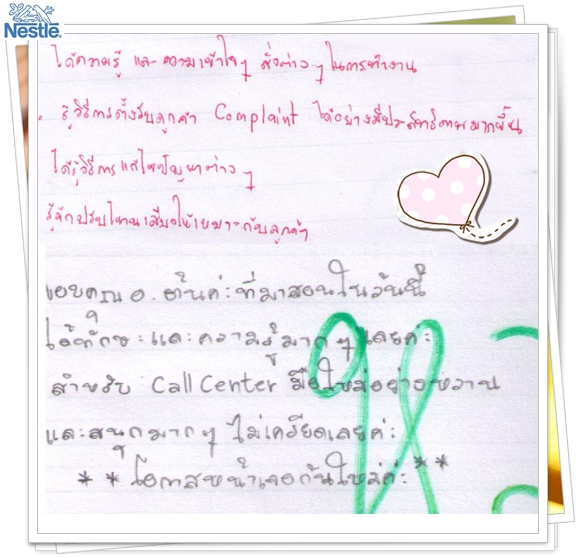 Nestlé
ได้ความรู้ และ ความเข้าใจๆ สิ่งต่างๆ ในการทำงาน
รู้วิธีการตั้งรับลูกค้า Complaint ได้อย่างมีประสิทธิภาพมากขึ้น
ได้รู้วิธีการแก้ไขปัญหาต่างๆ
รู้จักปรับโทนเสียงให้เหมาะกับลูกค้า
ขอบคุณ อ. ต้นค่ะที่มาสอนในวันนี้
ได้ทักษะและความรู้มากๆ เลยค่ะ
สำหรับ Call Center มือใหม่อย่างหวาน
และสนุกมากๆ ไม่เครียดเลยค่ะ
** โอกาสหน้าเจอกันใหม่ค่ะ **